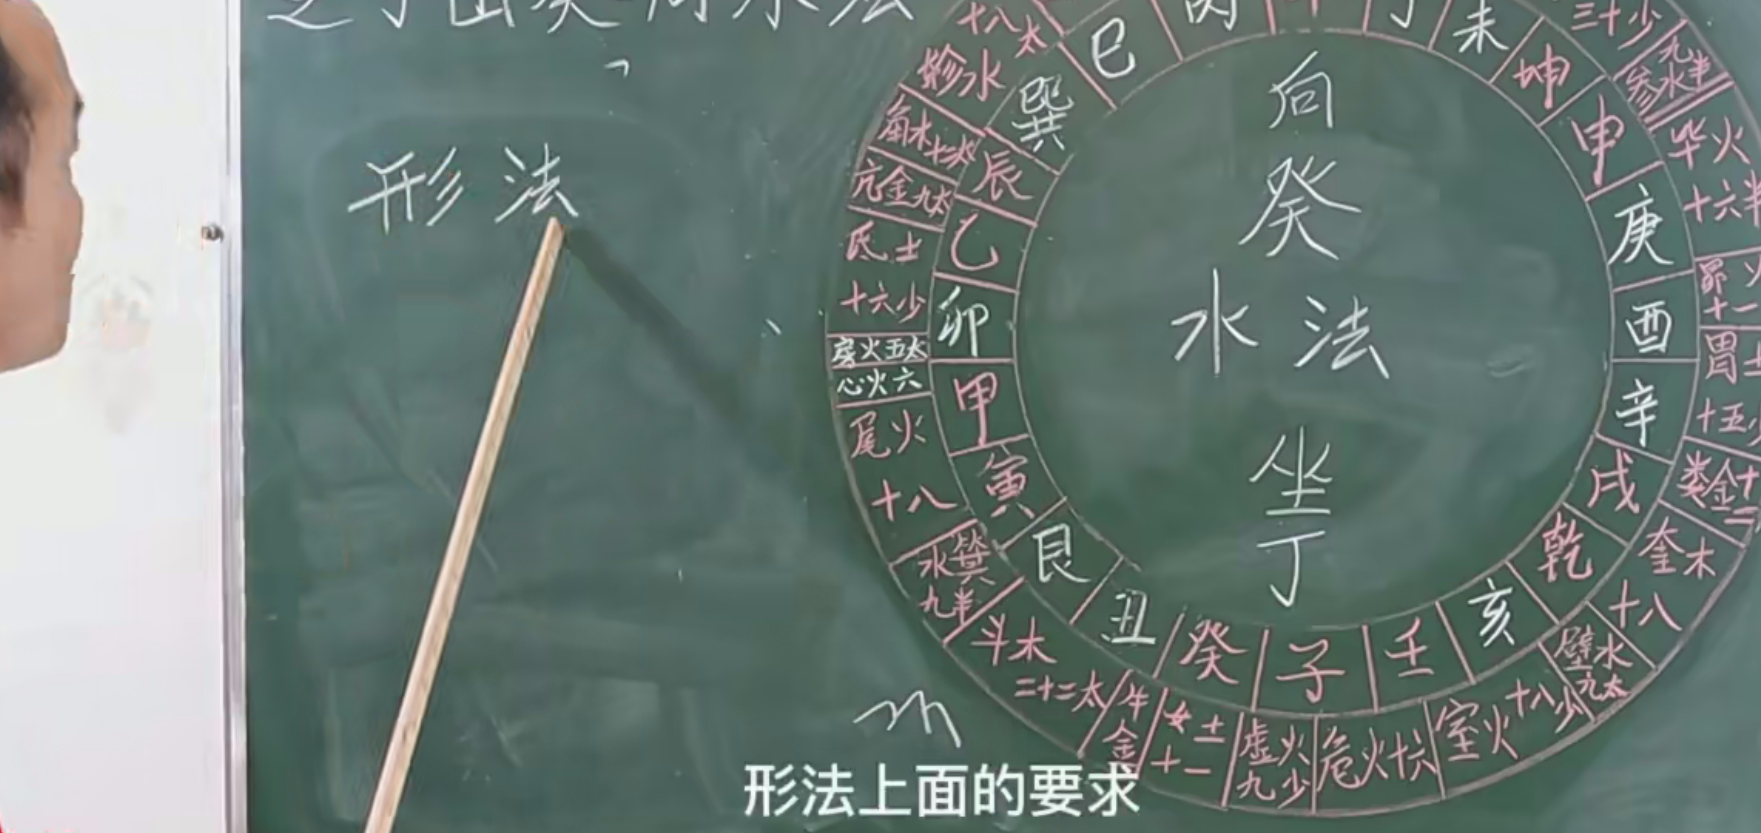 丁山癸向水法
形法
向
癸
水法
坐
丁
巳
丙
午
丁
未
坤
申
庚
酉
辛
戌
乾
亥
壬
子
癸
丑
艮
寅
甲
卯
乙
辰
巽
十八太
轸水
角水十二太
亢金九太
氐土
十六少
房火五太
心火六
尾火
十八
箕水
九半
斗木
二十二太
牛金
女土
十一
虚火
九少
危火十六
室火十八少
壁水
九太
奎木
十八
娄金十二
胃土
十五少
昴火
十一
毕火
十六半
参水
九半
三十少
形法上面的要求